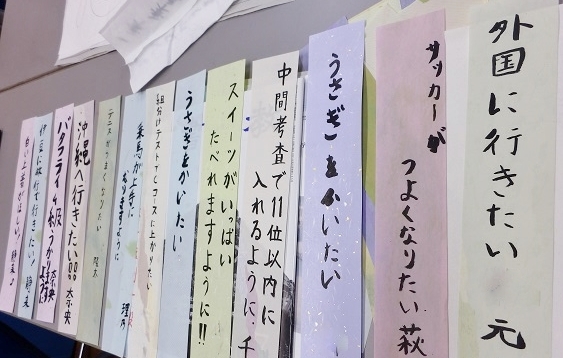 外国に行きたい 元
サッカーが
つよくなりたい 萩
うさぎをかいたい
中間考査で11位以内に
入れるように、千
スイーツがいっぱい
たべれますように!!
うさぎをかいたい
組分けテストでCコースに上がりたい
乗馬が上手に
なりますように 理乃
テニスがうまくなりたい
沖縄へ行きたい!! 奈央
バタフライ4級うかりますように 奈央
伊豆に旅行で行きたい!
白い上着がほしい!